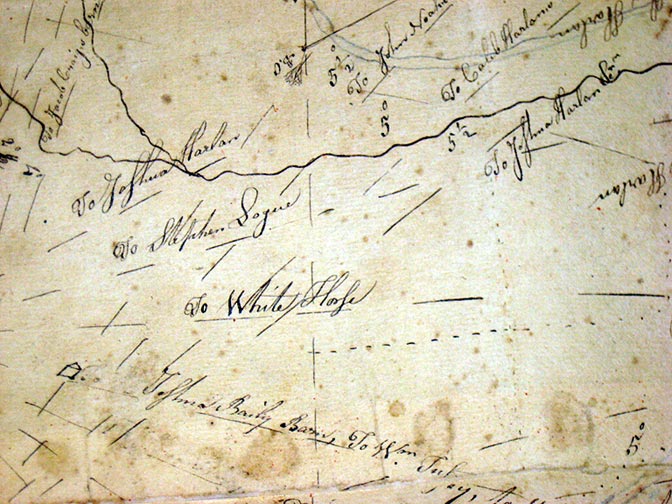 To John
To Caleb Harlans
Harlan
5°
5½
To Jacob Craigs
5°
5½
To Joshua Harlan Senr
To Joshua Harlan
Harlan
To Stephen Logue
To White Horse
Joshua Baily Barn, To Wm
5°